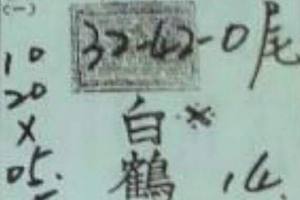 (一)
32-42-0尾
10
20
X
05.
白
鶴
14